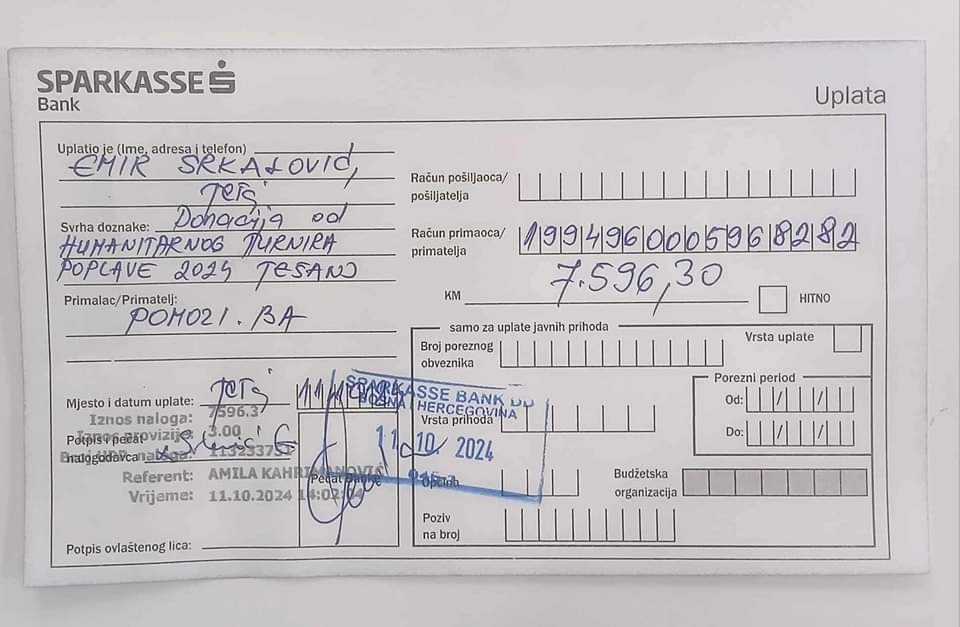 SPARKASSE
Bank
Uplata
Uplatio je (Ime, adresa i telefon)
EMIR SRKALOVIĆ,
Račun pošiljaoca/
pošiljatelja
Svrha doznake: Donacija od
HUMANITARNOG TURNIRA
POPLAVE 2024 TEŠANJ
Račun primaoca/
primatelja
1994960005968282
KM 7.596,30
HITNO
Primalac/Primatelj:
POMOZI.BA
samo za uplate javnih prihoda
Broj poreznog
obveznika
Vrsta uplate
Porezni period
Od: / /
Do: / /
Mjesto i datum uplate:
Iznos naloga: 7596.3
Iznos provizije: 3.00
Potpis i pečat
nalogodavca
Referent: AMILA KAHRIMANOVIĆ
Vrijeme: 11.10.2024 14:02:04
Pečat Banke
SPARKASSE BANK DD
BOSNA I HERCEGOVINA
11 10 2024
Vrsta prihoda
Općina
Budžetska
organizacija
Poziv
na broj
Potpis ovlaštenog lica: